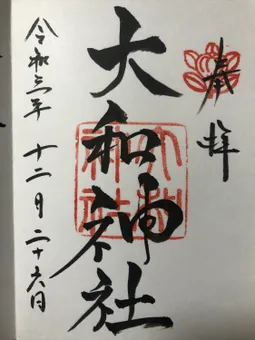 奉拝
大和神社
令和三年十二月二十六日